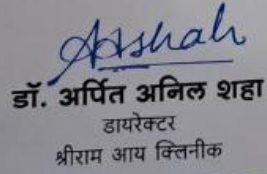 AAShah
डॉ. अर्पित अनिल शहा
डायरेक्टर
श्रीराम आय क्लिनीक